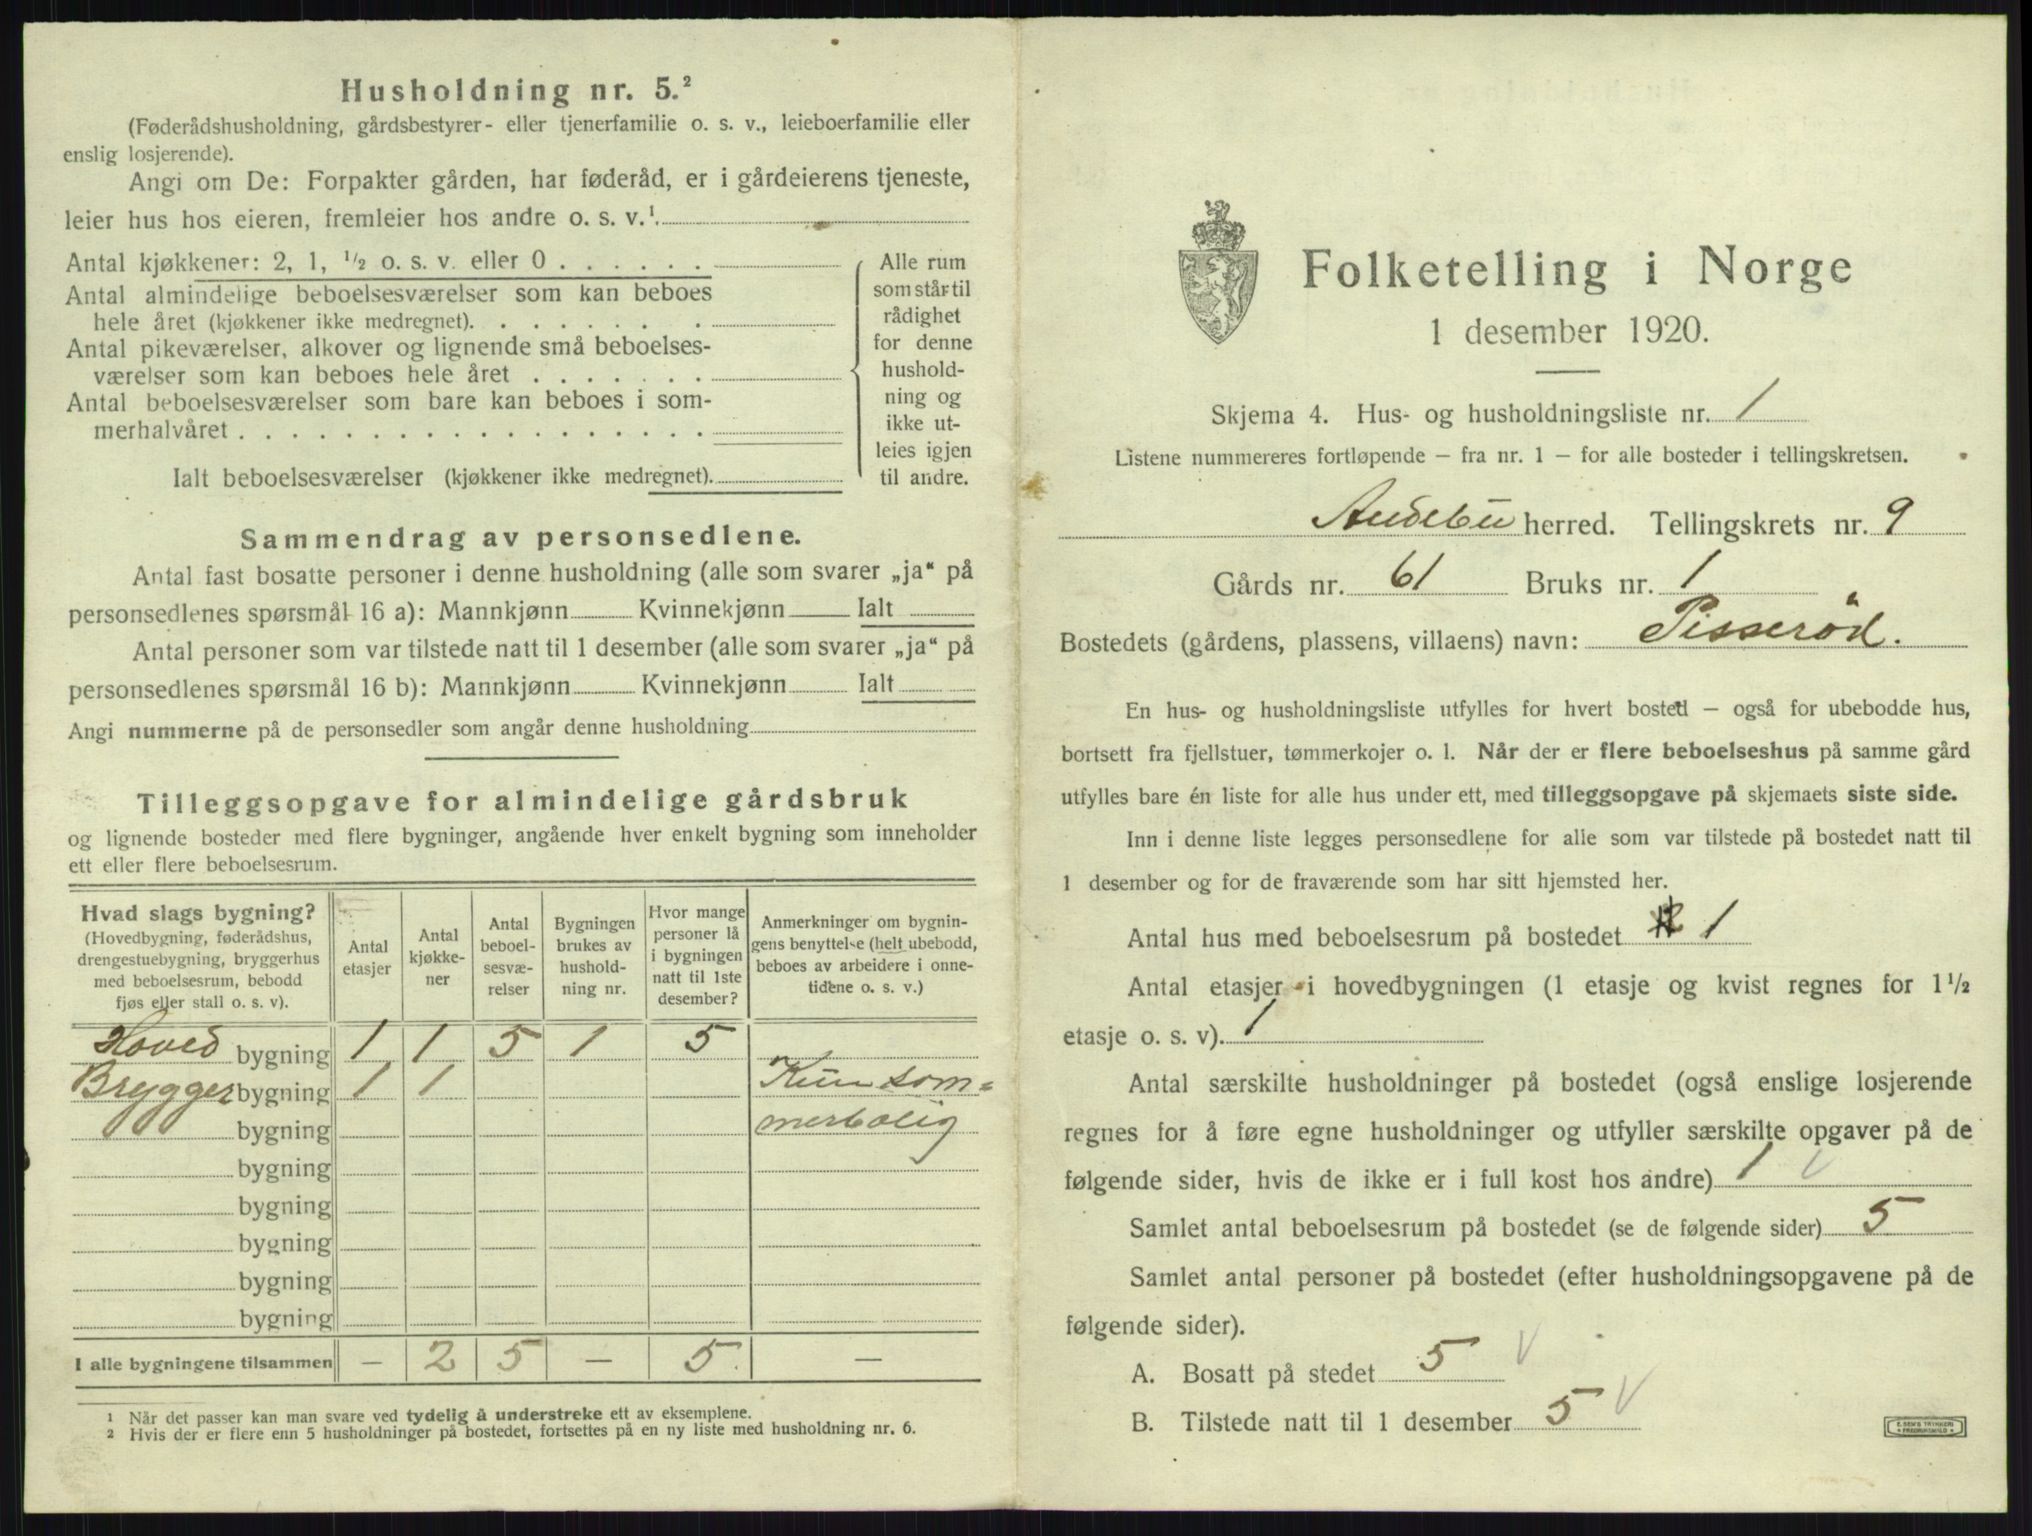 Husholdning nr. 5.²
(Føderådshusholdning, gårdsbestyrer- eller tjenerfamilie o. s. v., leieboerfamilie eller
enslig losjerende).
Angi om De: Forpakter gården, har føderåd, er i gårdeierens tjeneste,
leier hus hos eieren, fremleier hos andre o. s. v.¹
Antal kjøkkener: 2, 1, ½ o. s. v. eller 0 . . . . . .
Antal almindelige beboelsesværelser som kan beboes
hele året (kjøkkener ikke medregnet). . . . . . .
Antal pikeværelser, alkover og lignende små beboelses-
værelser som kan beboes hele året . . . . . . .
Antal beboelsesværelser som bare kan beboes i som-
merhalvåret . . . . . . . . . . . . . . . . . .
Ialt beboelsesværelser (kjøkkener ikke medregnet).
Alle rum
som står til
rådighet
for denne
hushold-
ning og
ikke ut-
leies igjen
til andre.
Sammendrag av personsedlene.
Antal fast bosatte personer i denne husholdning (alle som svarer „ja“ på
personsedlenes spørsmål 16 a): Mannkjønn Kvinnekjønn Ialt
Antal personer som var tilstede natt til 1 desember (alle som svarer „ja“ på
personsedlenes spørsmål 16 b): Mannkjønn Kvinnekjønn Ialt
Angi nummerne på de personsedler som angår denne husholdning
Tilleggsopgave for almindelige gårdsbruk
og lignende bosteder med flere bygninger, angående hver enkelt bygning som inneholder
ett eller flere beboelsesrum.
Hvad slags bygning?
(Hovedbygning, føderådshus,
drengestuebygning, bryggerhus
med beboelsesrum, bebodd
fjøs eller stall o. s. v).
Antal
etasjer
Antal
kjøkke-
ner
Antal
beboel-
sesvæ-
relser
Bygningen
brukes av
hushold-
ning nr.
Hvor mange
personer lå
i bygningen
natt til 1ste
desember?
Anmerkninger om bygnin-
gens benyttelse (helt ubebodd,
beboes av arbeidere i onne-
tidene o. s. v.)
Hoved bygning 1 1 5 1 5
Brygger bygning 1 1 Kun som=
bygning merbolig
bygning
bygning
bygning
bygning
bygning
I alle bygningene tilsammen — 2 5 — 5. —
1 Når det passer kan man svare ved tydelig å understreke ett av eksemplene.
2 Hvis der er flere enn 5 husholdninger på bostedet, fortsettes på en ny liste med husholdning nr. 6.
Folketelling i Norge
1 desember 1920.
Skjema 4. Hus- og husholdningsliste nr. 1
Listene nummereres fortløpende — fra nr. 1 — for alle bosteder i tellingskretsen.
Andebu herred. Tellingskrets nr. 9
Gårds nr. 61 Bruks nr. 1
Bostedets (gårdens, plassens, villaens) navn: Pisserød.
En hus- og husholdningsliste utfylles for hvert bosted — også for ubebodde hus,
bortsett fra fjellstuer, tømmerkojer o. l. Når der er flere beboelseshus på samme gård
utfylles bare én liste for alle hus under ett, med tilleggsopgave på skjemaets siste side.
Inn i denne liste legges personsedlene for alle som var tilstede på bostedet natt til
1 desember og for de fraværende som har sitt hjemsted her.
Antal hus med beboelsesrum på bostedet 1
Antal etasjer i hovedbygningen (1 etasje og kvist regnes for 1½
etasje o. s. v). 1
Antal særskilte husholdninger på bostedet (også enslige losjerende
regnes for å føre egne husholdninger og utfyller særskilte opgaver på de
følgende sider, hvis de ikke er i full kost hos andre) 1 V
Samlet antal beboelsesrum på bostedet (se de følgende sider) 5
Samlet antal personer på bostedet (efter husholdningsopgavene på de
følgende sider).
A. Bosatt på stedet 5 V
B. Tilstede natt til 1 desember 5 V